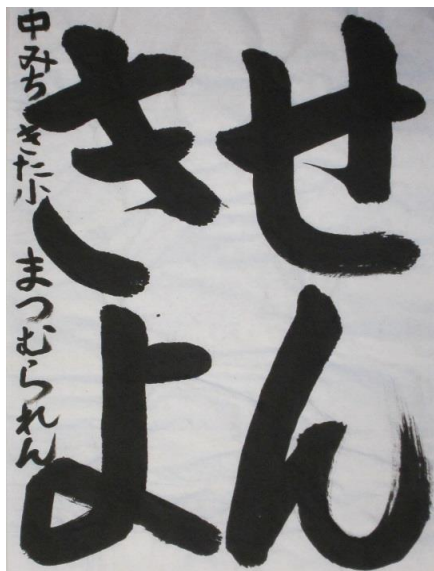 せん
きよ
中みちきた小 まつむられん